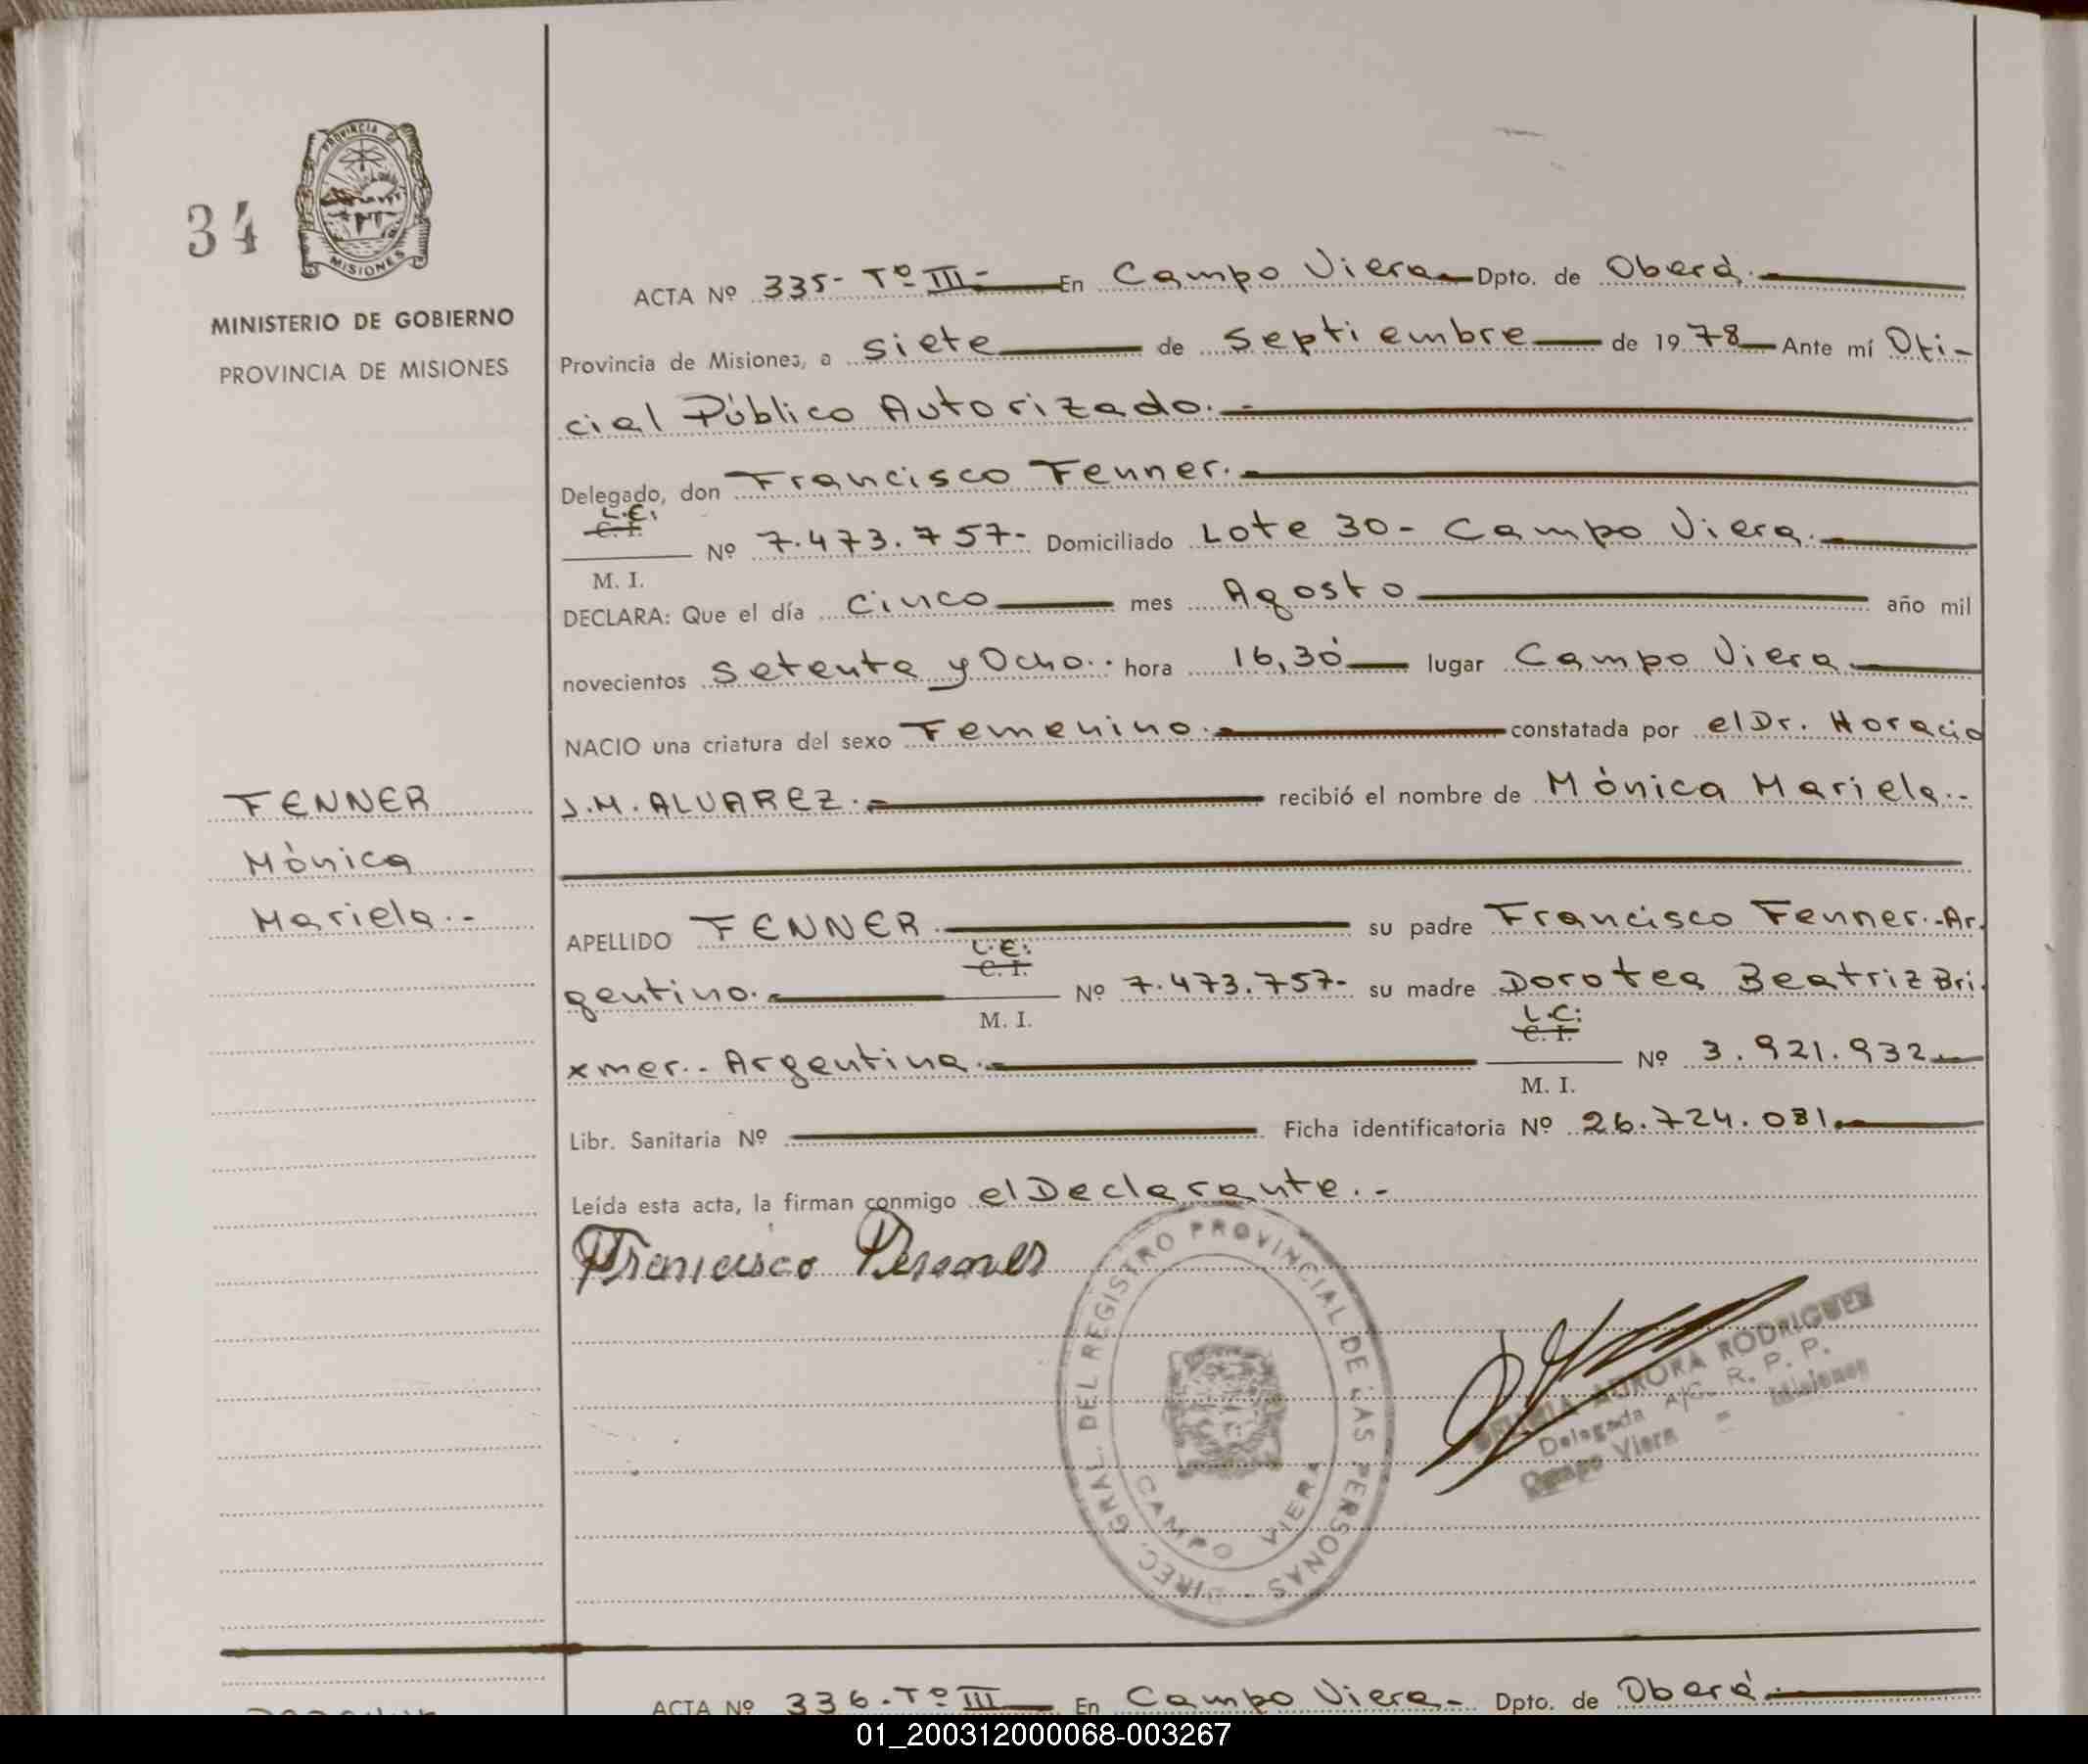 34
PROVINCIA DE
MISIONES
MINISTERIO DE GOBIERNO
PROVINCIA DE MISIONES
FENNER
Mónica
Mariela.-
ACTA Nº 335- Tº III- En Campo Viera Dpto. de Oberá.
Provincia de Misiones, a siete de Septiembre de 1978 Ante mí Ofi-
cial Público Autorizado.-
Delegado, don Francisco Fenner.
L.E.
C. I.
Nº 7.473.757- Domiciliado Lote 30- Campo Viera.
M. I.
DECLARA: Que el día cinco mes Agosto año mil
novecientos setenta y Ocho.. hora 16,30 lugar Campo Viera
NACIO una criatura del sexo Femenino. constatada por el Dr. Horacio
J.M. ALVAREZ. recibió el nombre de Mónica Mariela.-
APELLIDO FENNER su padre Francisco Fenner.-Ar.
L.E:
C. I.
gentino. Nº 7.473.757- su madre Dorotea Beatriz Bri.
M. I.
L.C:
C. I.
xmer.- Argentina. Nº 3.921.932
M. I.
Libr. Sanitaria Nº Ficha identificatoria Nº 26.724.081.
Leída esta acta, la firman conmigo el Declarante.-
Francisco Fenner
DIREC. GRAL. DEL REGISTRO PROVINCIAL DE LAS PERSONAS
CAMPO VIERA
AURORA RODRIGUEZ
Delegada A/C. R. P. P.
Campo Viera - Misiones
ACTA Nº 336.-Tº III En Campo Viera- Dpto. de Oberá
01_200312000068-003267